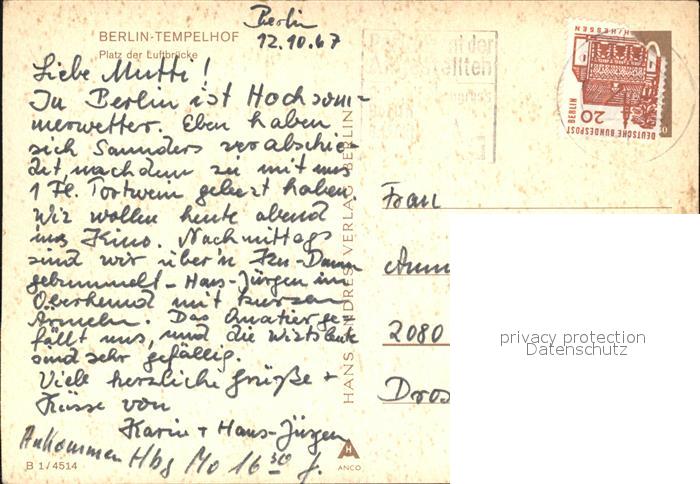 BERLIN-TEMPELHOF
Platz der Luftbrücke
Berlin
12.10.67
Liebe Mutti!
In Berlin ist Hochsom-
merwetter. Eben haben
sich Saunders verabschie-
det, nachdem sie mit uns
1 Fl. Portwein geleert haben.
Wir wollen heute abend
ins Kino. Nachmittags
sind wir über'n Ku-Damm
gebummelt – Hans-Jürgen im
Oberhemd mit kurzen
Ärmeln. Das Quartier ge-
fällt uns, und die Wirtsleute
sind sehr gefällig.
Viele herzliche Grüße +
Küsse von
Karin + Hans-Jürgen
Ankommen Hbg Mo 16 30 
B 1/4514
HANS ANDRES VERLAG BERLIN
H
ANCO
der
llten
HESSEN
20
BERLIN
DEUTSCHE BUNDESPOST
Frau
2080
privacy protection
Datenschutz